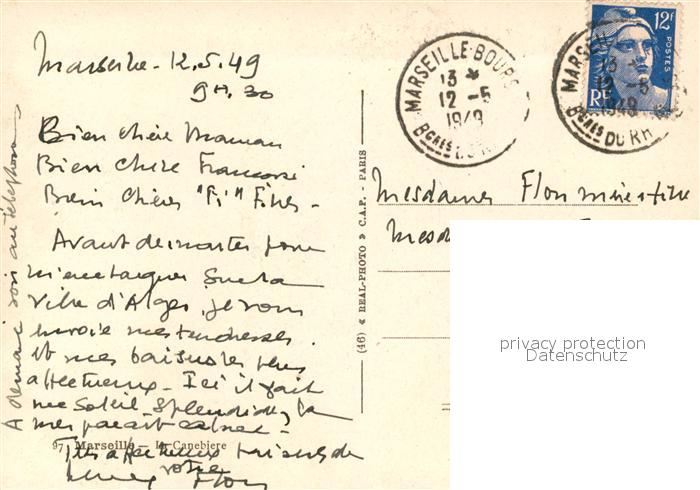 Marseille - 12.5.49
9H.30
Bien chère Maman
Bien chère Francoise
Bien chères "Fi" Filles -
Avant de monter pour
m'embarquer sur la
Ville d'Alger, je vous
envoie mes tendresses.
et mes baisers les plus
affectueux - Ici il fait
un soleil splendide, la
mer parait calme -
Très affectueux baisers de
votre
Flon
A demain soir au téléphone
97. Marseille — La Canebière
(46) « REAL-PHOTO » C.A.P. - PARIS
MARSEILLE-BOURSE
13 *
12 -5
1949
Bches DU R
MARSEI
13
12 -5
1949
Bches DU RH
12F
POSTES
RF
Mesdames Flon mère & fille
Mesd
privacy protection
Datenschutz